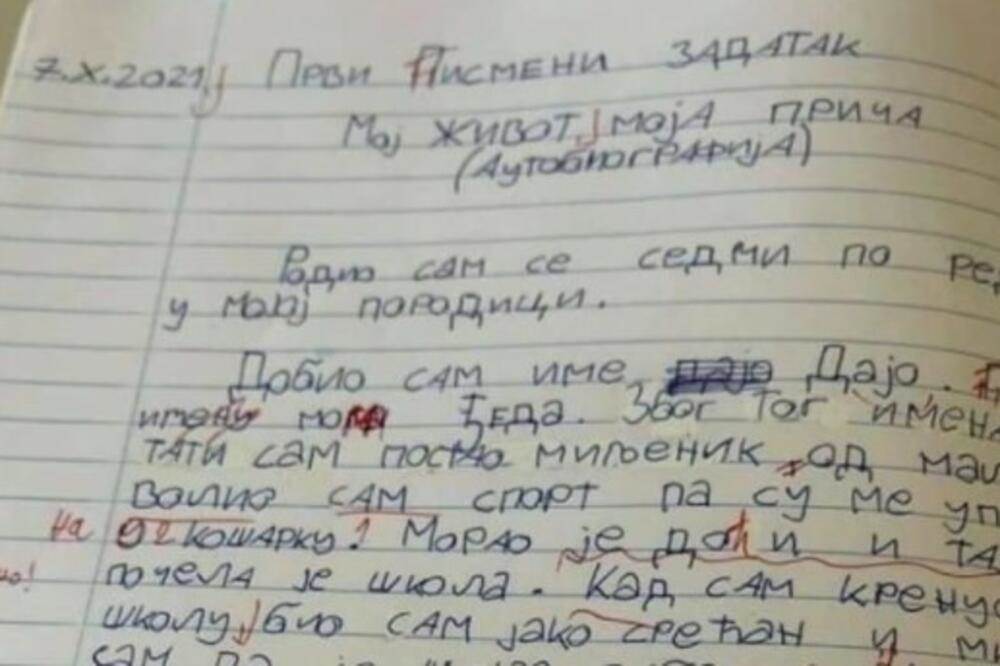 7.X.2021, Први Писмени ЗАДАТАК
Мој живот, моја прича
(Аутобиографија)
Родио сам се седми по
у мојој породици.
Добио сам име Дајо.
ђеда. Због тог
тати сам постао миљеник од
Волио сам спорт па су ме
на кошарку! Морао је доћи и
почела је школа. Кад сам
школу, био сам јако срећан и
сам па је